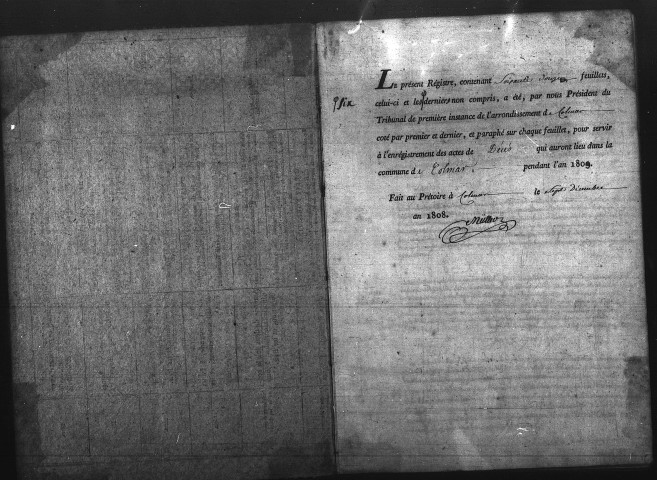 Le présent Régistre, contenant Soixante douze feuillets,
celui-ci et les six derniers non compris, a été, par nous Président du
Tribunal de première instance de l'arrondissement de Colmar
coté par premier et dernier, et paraphé sur chaque feuillet, pour servir
à l'enrégistrement des actes de Décès qui auront lieu dans la
commune de Colmar pendant l'an 1809.
Fait au Prétoire à Colmar le Sept Décembre
an 1808.